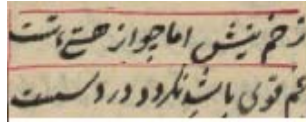 زخم نیش اما چو از هستی تست
غم قوی باشد نگردد درد سست